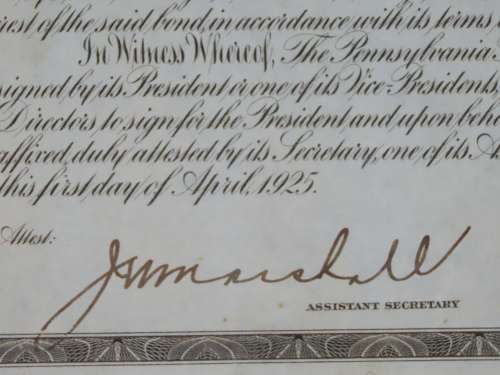 rest of the said bond, in accordance with its terms
In Witness Whereof, The Pennsylvania
signed by its President or one of its Vice-Presidents,
Directors to sign for the President and upon beha
affixed, duly attested by its Secretary, one of its A
this first day of April, 1925.
Attest:
JWMarshall
ASSISTANT SECRETARY